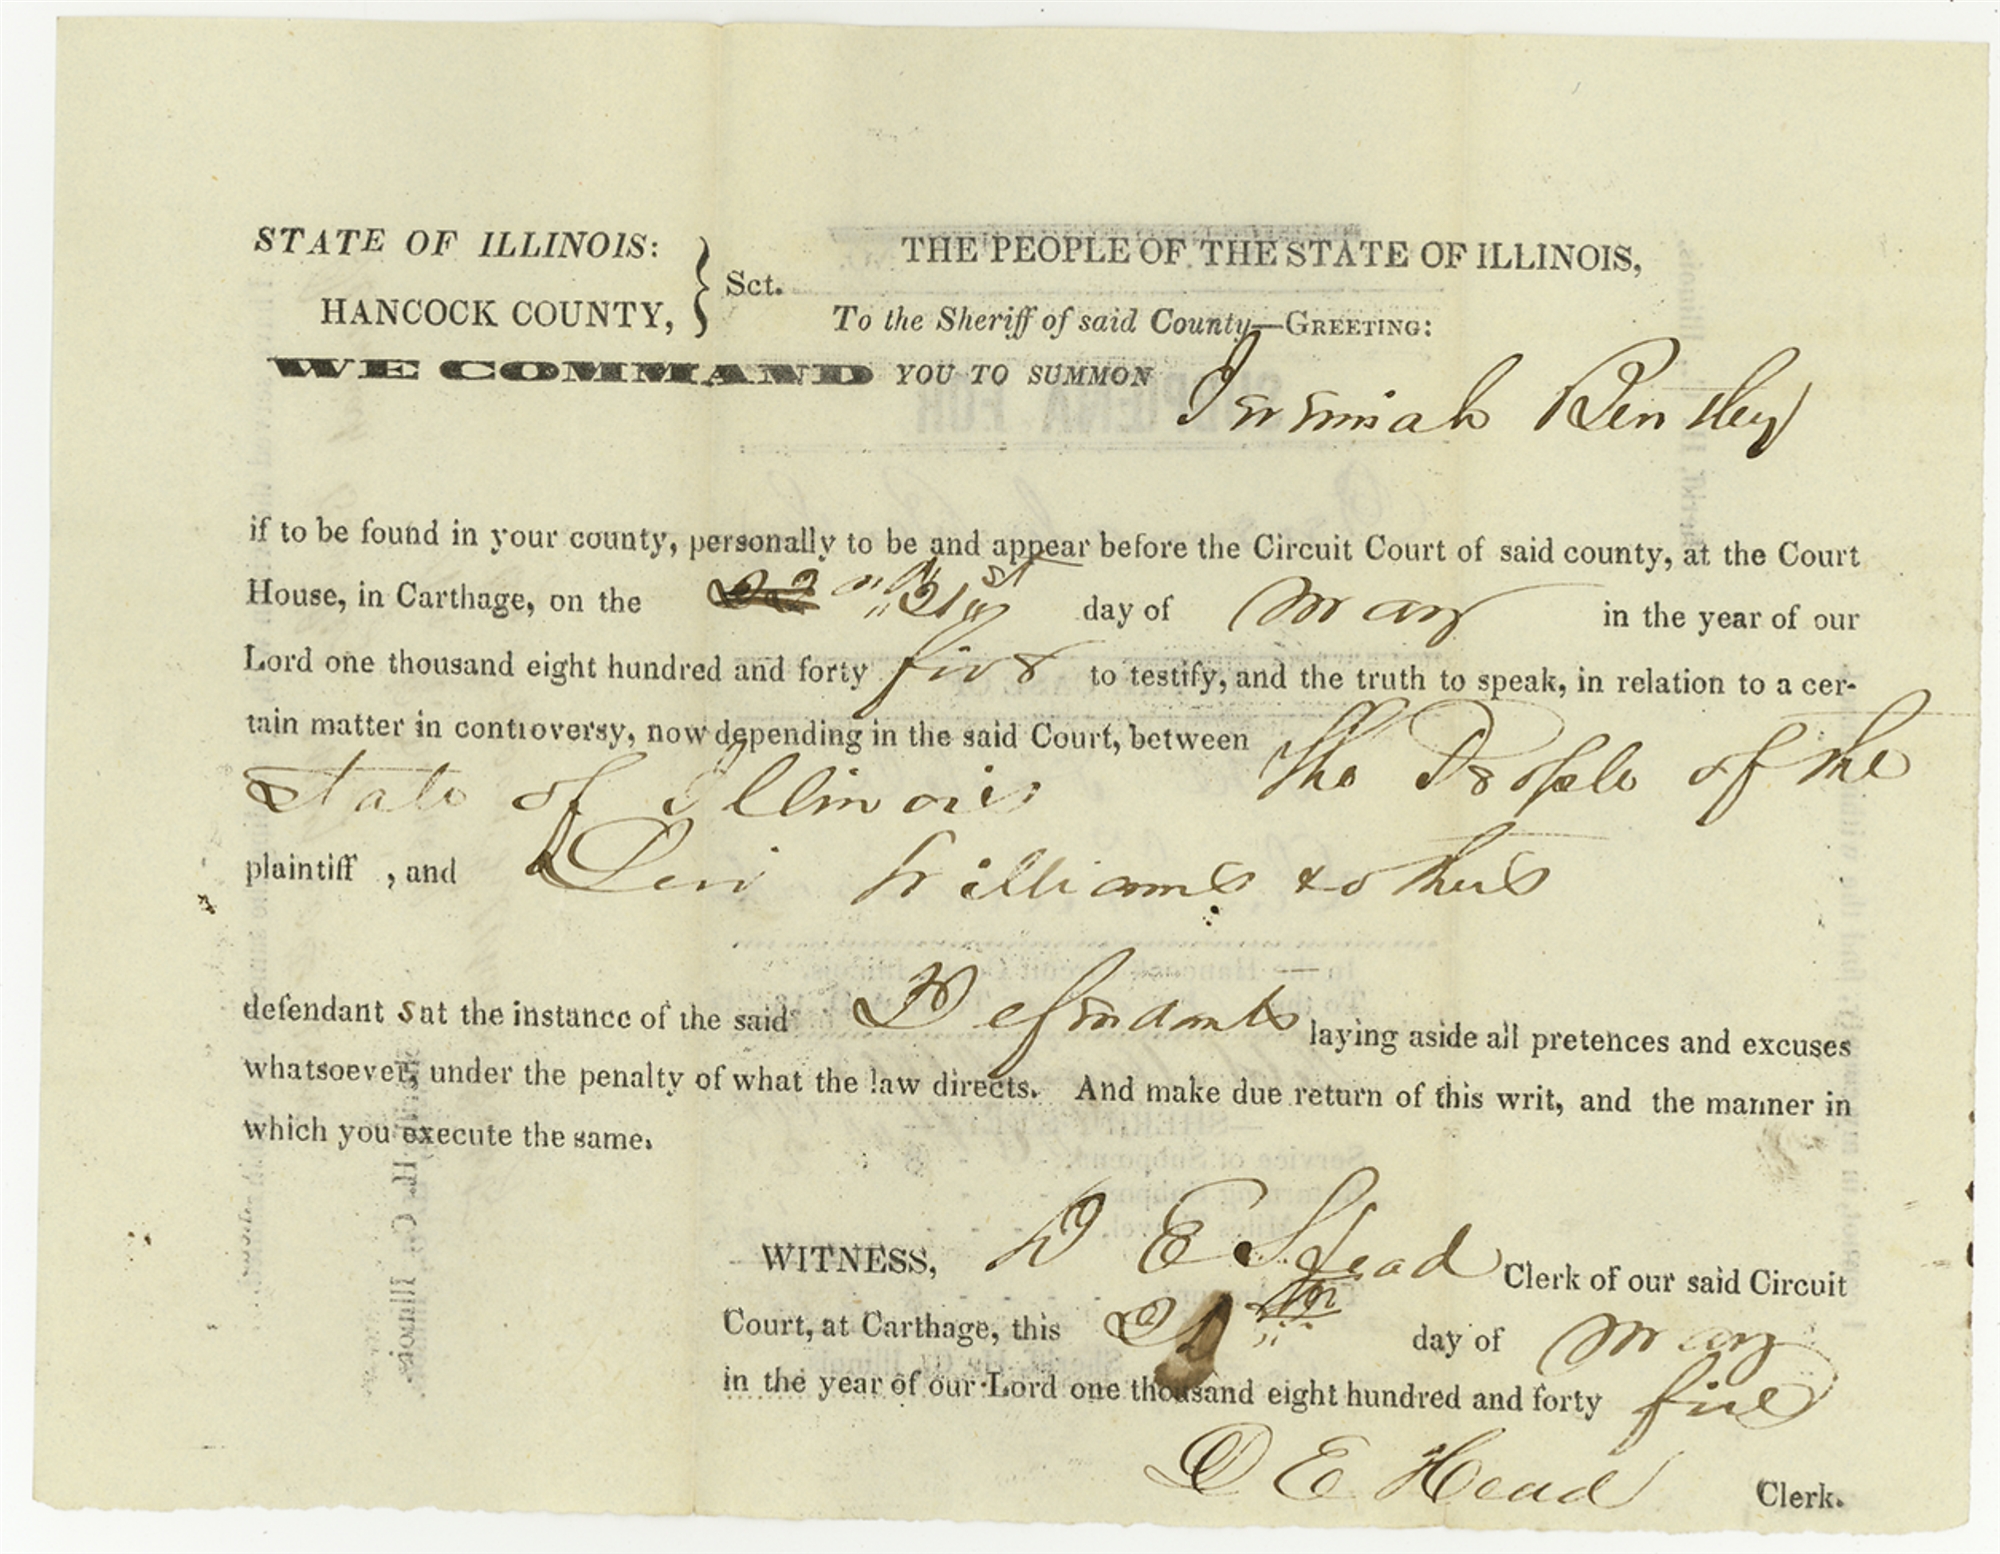 STATE OF ILLINOIS:
HANCOCK COUNTY,
Sct.
THE PEOPLE OF THE STATE OF ILLINOIS,
To the Sheriff of said County—GREETING:
WE COMMAND YOU TO SUMMON Jeremiah Bensley
if to be found in your county, personally to be and appear before the Circuit Court of said county, at the Court
House, in Carthage, on the 21st day of May in the year of our
Lord one thousand eight hundred and forty five to testify, and the truth to speak, in relation to a cer-
tain matter in controversy, now depending in the said Court, between The People of the
State of Illinois
plaintiff , and Levi Williams & others
defendant s at the instance of the said Defendants laying aside all pretences and excuses
whatsoever, under the penalty of what the law directs. And make due return of this writ, and the manner in
which you execute the same.
WITNESS, D E Head Clerk of our said Circuit
Court, at Carthage, this day of May
in the year of our Lord one thousand eight hundred and forty five
D E Head Clerk.